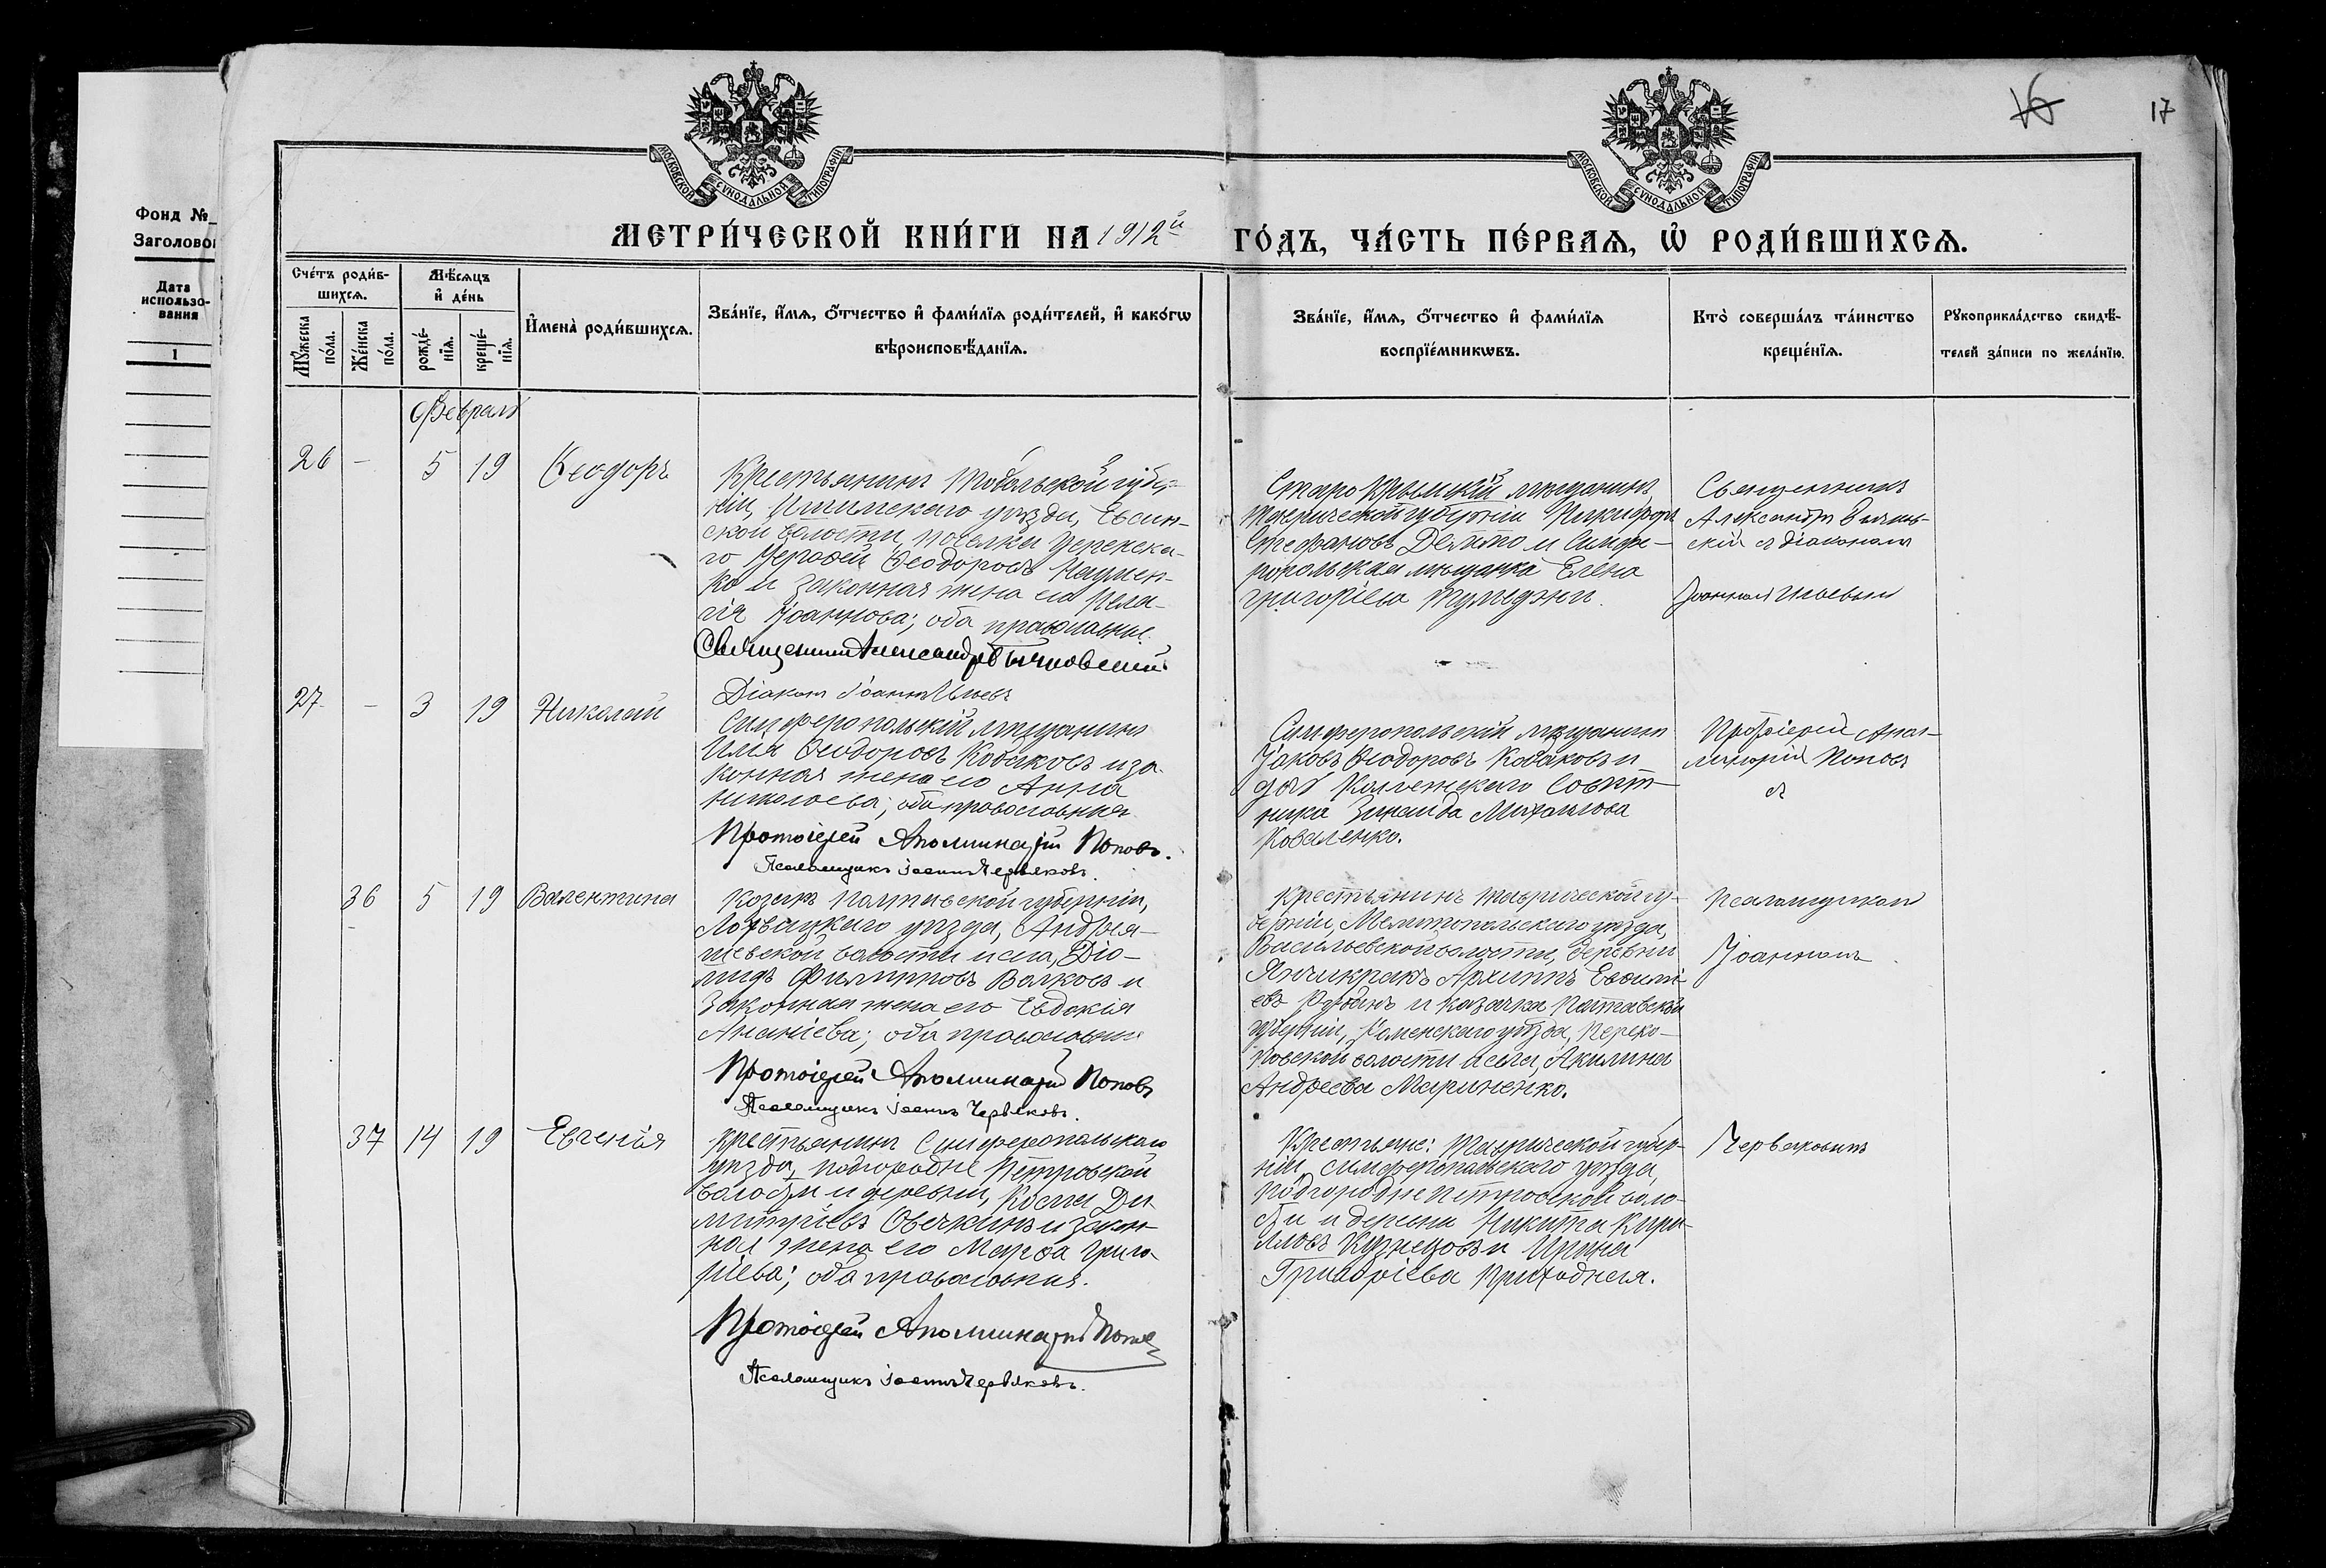 17
Фонд №
Заголово
Дата
использо-
вания
1
МОСКОВСКОЙ СѴНОДАЛЬНОЙ ТИПОГРАФІИ
МОСКОВСКОЙ СѴНОДАЛЬНОЙ ТИПОГРАФІИ
МЕТРИ́ЧЕСКОЙ КНИ́ГИ НА 1912й ГО́ДЪ, ЧА́СТЬ ПЕ́РВАѦ, Ѡ РОДИ́ВШИХСѦ.
Сче́тъ роди́в-
шихсѧ.
Мꙋ́жеска по́ла.
Же́нска по́ла.
Мѣ́сяцъ
и҆ де́нь
рожде́-нїѧ.
креще́-нїѧ.
И҆мена̀ роди́вшихсѧ.
Зва́нїе, и҆́мѧ, ѻ҆́тчество и҆ фами́лїѧ роди́телей, и҆ како́гѡ
вѣроисповѣ́данїѧ.
Зва́нїе, и҆́мѧ, ѻ҆́тчество и҆ фами́лїѧ
воспрїе́мникѡвъ.
Кто̀ соверша́лъ та́инство
креще́нїѧ.
Рꙋкоприкла́дство свидѣ́-
телей за́писи по жела́нїю.
Февраль
26 - 5 19 Ѳеодоръ
Крестьянинъ Тобольской губер-
ніи, Ишимскаго уѣзда,
ской волости, поселка
го Ѳеодоровъ Наумен-
ко и законная жена его Пела-
гія Іоаннова; оба православные.
Священникъ Александръ
Діаконъ Іоаннъ Ильевъ
Старокрымскій мѣщанинъ,
Таврической губерніи Никифоръ
Стефановъ и Симфе-
ропольская мѣщанка Елена
Григоріева
Священникъ
Александръ
скій съ діакономъ
Іоанномъ Ильевымъ
27 - 3 19 Николай
Симферопольскій мѣщанинъ
Илья Ѳеодоровъ Кобяковъ и за-
конная жена его Анна
Николаева; оба православные
Протоіерей Аполлинарій Поповъ.
Псаломщикъ Іоаннъ Червяковъ.
Симферопольскій мѣщанинъ
Іаковъ Ѳеодоровъ Кобяковъ и
дочь Коллежскаго Совѣт-
ника Зинаида Михаилова
Коваленко.
Протоіерей Апол-
линарій Поповъ
съ
36 5 19 Валентина
Козакъ Полтавской губерніи,
Лохвицкаго уѣзда, Андрея-
шевской волости и села, Діо-
мидъ Филипповъ Волковъ и
законная жена его Евдокія
Ананіева; оба православные
Протоіерей Аполлинарій Поповъ
Псаломщикъ Іоаннъ Червяковъ.
Крестьянинъ Таврической гу-
берніи, Мелитопольскаго уѣзда,
Васильевской волости, деревни
Янчикракъ Архиппъ Евѳимі-
евъ и казачка Полтавской
губерніи, Роменскаго уѣзда, Переко-
повской волости и села, Акилина
Андреева Мариненко.
Псаломщикомъ
Іоанномъ
37 14 19 Евгенія
Крестьянинъ Симферопольскаго
уѣзда, Подгородне Петровской
волости и деревни, Косма Ди-
митріевъ Овечкинъ и закон-
ная жена его Марѳа Григо-
ріева; оба православные.
Протоіерей Аполлинарій Поповъ
Псаломщикъ Іоаннъ Червяковъ.
Крестьяне: Таврической губер-
ніи, Симферопольскаго уѣзда,
Подгородне Петровской воло-
сти и деревни Никита Кири-
лловъ Кузнецовъ и Ирина
Григоріева Приходная.
Червяковымъ